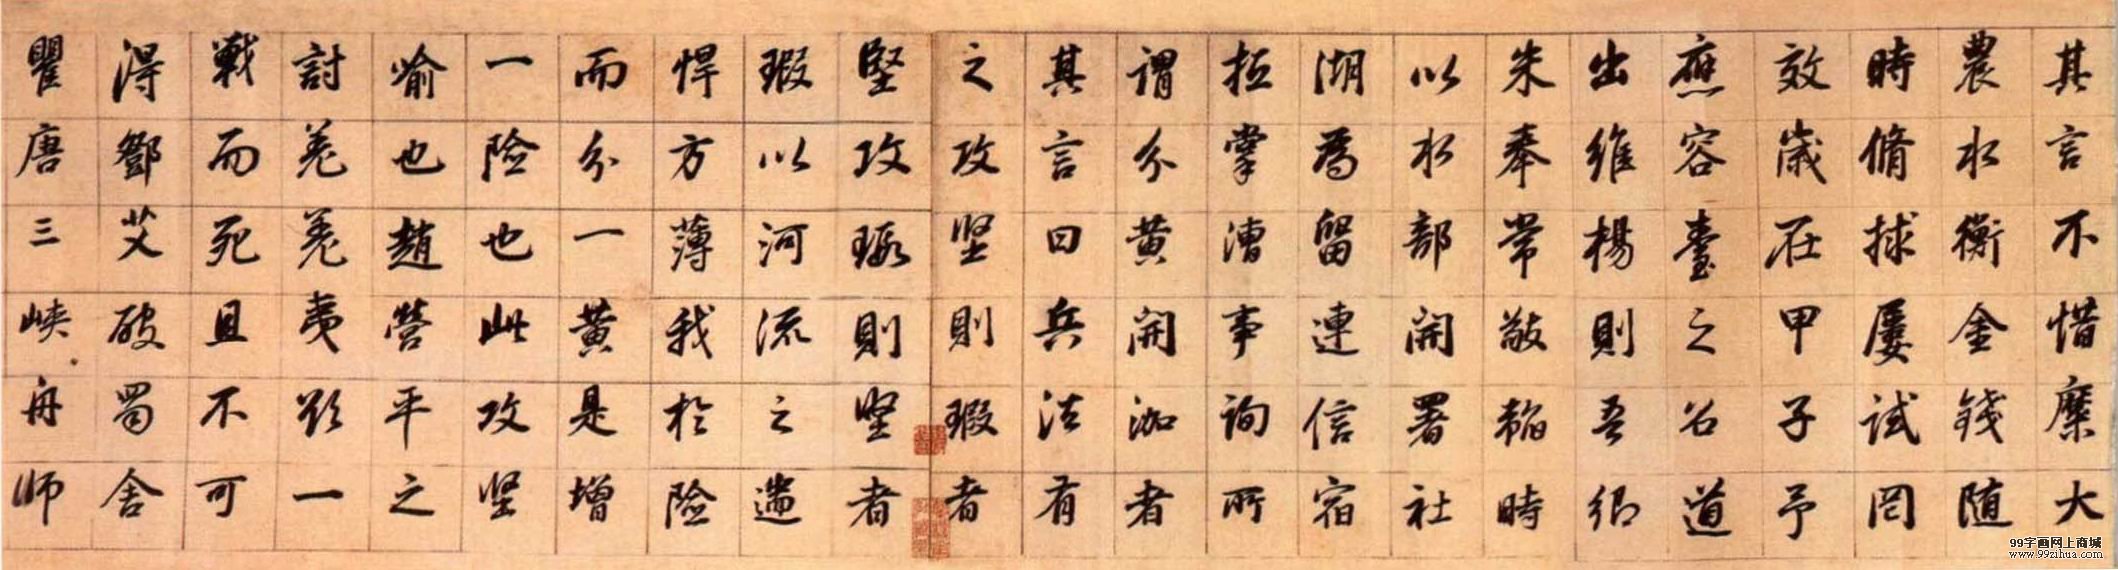 其言不惜糜大
農水衡金錢随
時脩捄屡试罔
效歲在甲子予
應容臺之召道
出維楊則吾鄉
朱奉常敬韜時
以水部開署社
湖為留連信宿
抵掌漕事詢所
謂分黄開泇者
其言曰兵法有
之攻坚則瑕者
堅攻瑕則坚者
瑕以河流之遄
悍方薄我於險
而分一黄是增
一險也此攻坚
喻也趙營平之
討羌羌夷欲一
戰而死且不可
得鄧艾破蜀舍
瞿唐三峽舟師
99字画网上商城
www.99zihua.com